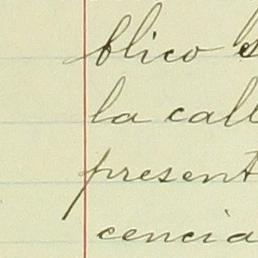 blico s
la call
present
cencia